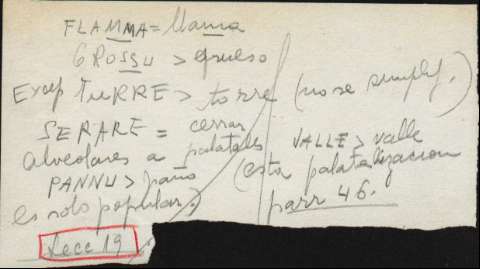 FLAMMA = llama
GROSSU > grueso
Excep TURRE > torre (no se simplif.)
SERARE = cerrar
alveolares a palatales VALLE > valle
PANNU > paño (esta palatalizacion
es solo popular.) parr 46.
Lecc 19